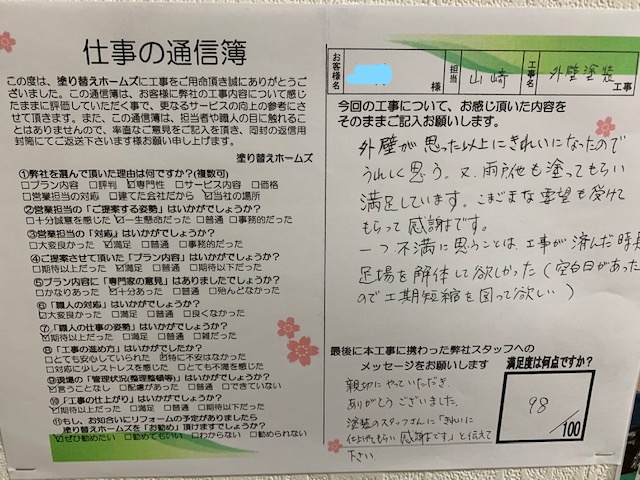 仕事の通信簿
この度は、塗り替えホームズに工事をご用命頂き誠にありがとうご
ざいました。この通信簿は、お客様に弊社の工事内容について感じ
たままに評価していただく事で、更なるサービスの向上の参考にさ
せて頂きます。また、この通信簿は、担当者や職人の目に触れるこ
とはありませんので、率直なご意見をご記入を頂き、同封の返信用
封筒にてご返送下さいます様お願い申し上げます。
塗り替えホームズ
①弊社を選んで頂いた理由は何ですか?(複数可)
□プラン内容 □評判 ☑専門性 □サービス内容 □価格
□営業担当の対応 □建てた会社だから ☑当社の場所
②営業担当の「ご提案する姿勢」はいかがでしょうか?
□十分誠意を感じた ☑一生懸命だった □普通 □事務的だった
③営業担当の「対応」はいかがでしょうか?
□大変良かった ☑満足 □普通 □事務的だった
④ご提案させて頂いた「プラン内容」はいかがでしょうか?
□期待以上だった ☑満足 □普通 □期待以下だった
⑤プラン内容に「専門家の意見」はありましたでしょうか?
□かなりあった ☑十分あった □普通 □殆んどなかった
⑥「職人の対応」はいかがでしょうか?
☑大変良かった □満足 □普通 □良くなかった
⑦「職人の仕事の姿勢」はいかがでしょうか?
☑期待以上だった □満足 □普通 □雑だった
⑧「工事の進め方」はいかがでしたか?
□とても安心していられた ☑特に不安はなかった
□対応に少しストレスを感じた □とても不満を感じた
⑨現場の「管理状況(整理整頓等)」はいかがでしょうか?
☑言うことなし □配慮があった □普通 □できていない
⑩「工事の仕上がり」はいかがでしょうか?
☑期待以上だった □満足 □普通 □期待以下だった
⑪もし、お知合いにリフォームの予定がありましたら
塗り替えホームズを「お勧め」頂けますでしょうか?
☑ぜひ勧めたい □勧めてもいい □わからない □勧められない
お客様名 様 担当 山崎 工事名 外壁塗装 工事
今回の工事について、お感じ頂いた内容を
そのままご記入お願いします。
外壁が思った以上にきれいになったので
うれしく思う。又、雨戸他も塗ってもらい
満足しています。こまごまな要望も受けて
もらって感謝です。
一つ不満に思うことは、工事が済んだ時点
足場を解体して欲しかった(空白日があった
ので工期短縮を図って欲しい)
最後に本工事に携わった弊社スタッフへの
メッセージをお願いします
親切にやっていただき、
ありがとうございました。
塗装のスタッフさんに「きれいに
仕上げてもらい感謝です」と伝えて
下さい
満足度は何点ですか?
98
/100